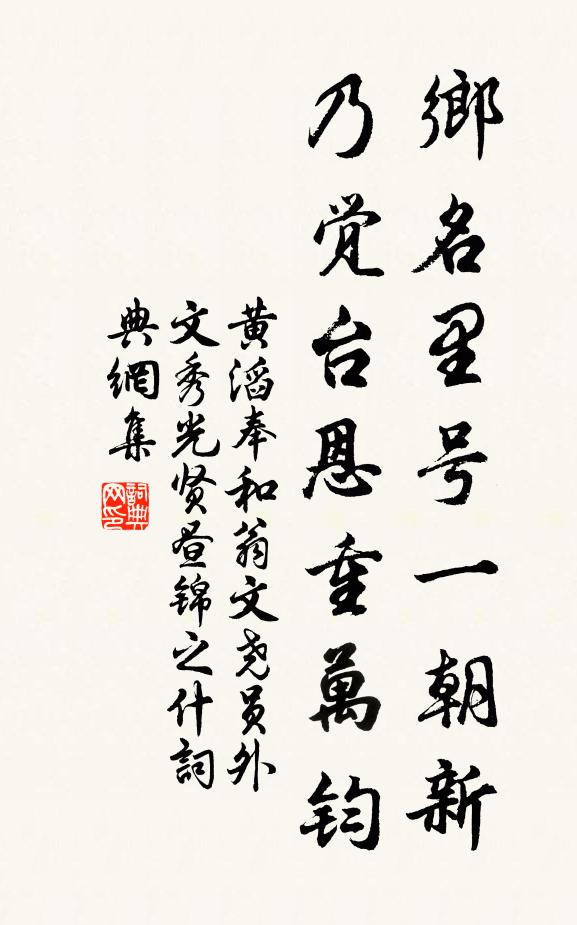 鄉名里号一朝新
乃觉台恩重萬钧
黄滔奉和翁文尧员外
文秀光贤昼锦之什詞
典網集
詞典网印